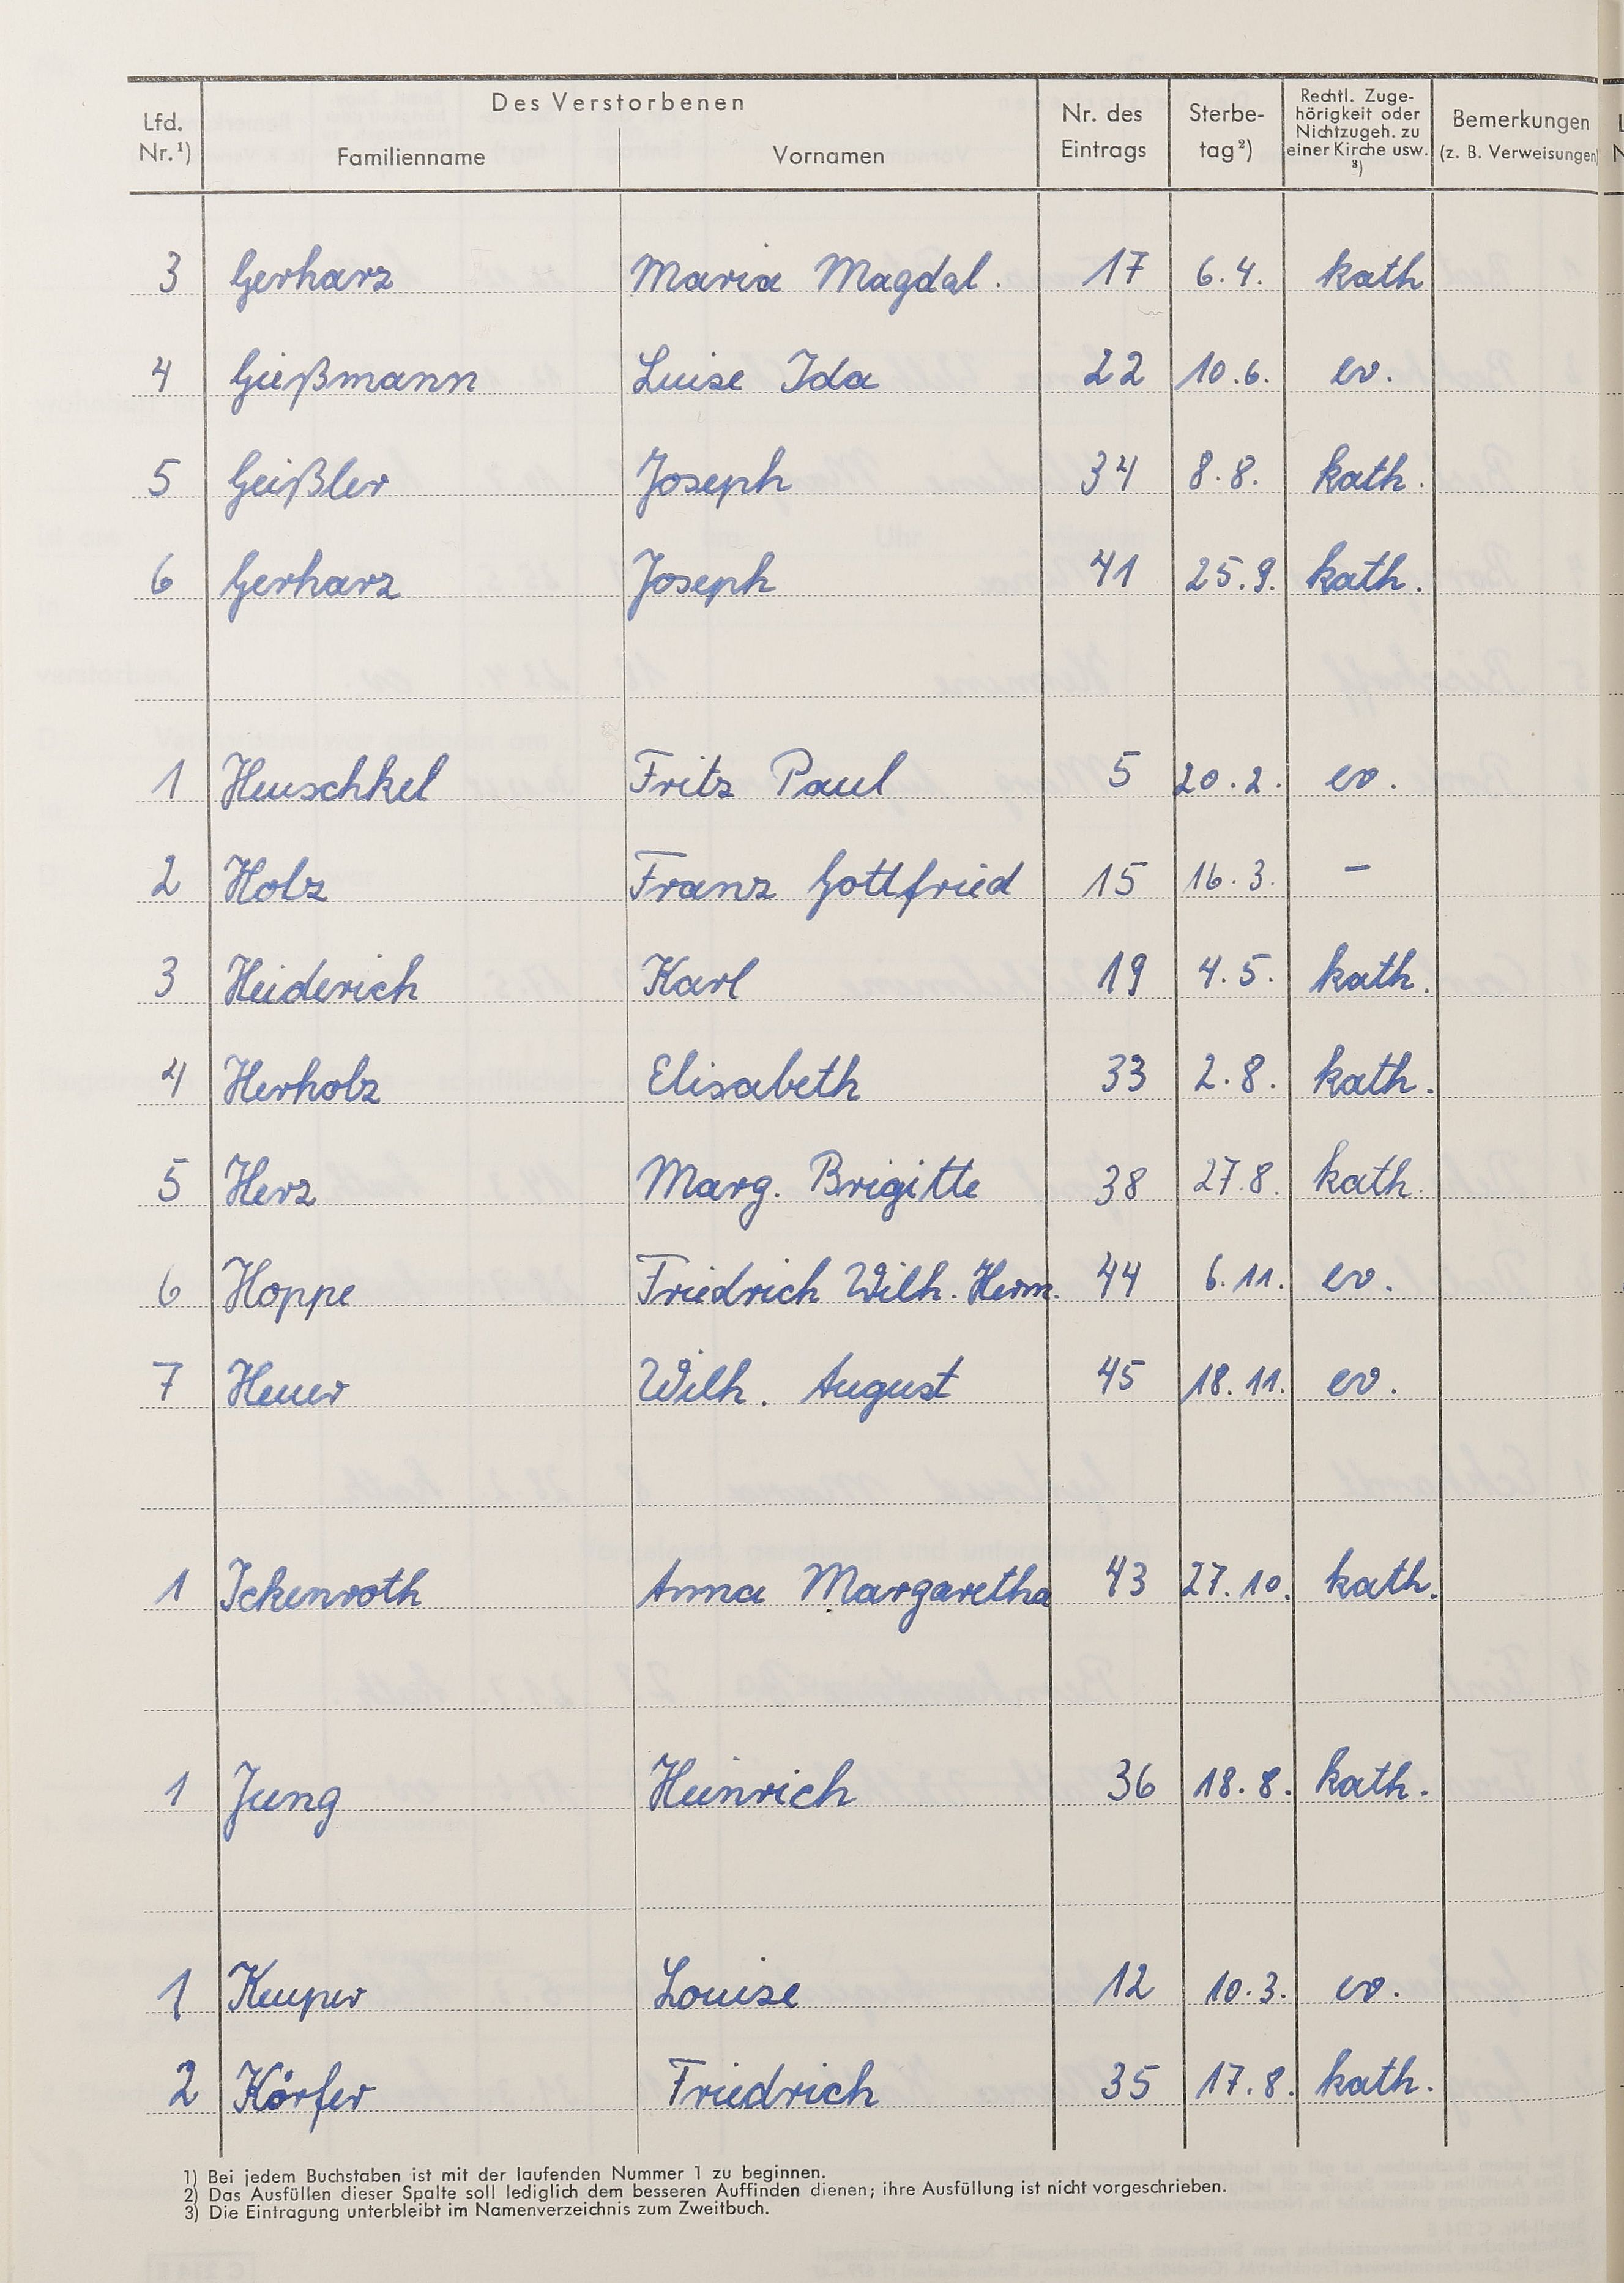 Des Verstorbenen
Lfd. Nr.¹) Familienname Vornamen Nr. des Eintrags Sterbe-tag²) Rechtl. Zuge-hörigkeit oder Nichtzugeh. zu einer Kirche usw. ³) Bemerkungen (z. B. Verweisungen)
3 Gerharz Maria Magdal. 17 6.4. kath
4 Gießmann Luise Ida 22 10.6. ev.
5 Geißler Joseph 34 8.8. kath.
6 Gerharz Joseph 41 25.9. kath.
1 Heuschkel Fritz Paul 5 20.2. ev.
2 Holz Franz Gottfried 15 16.3. –
3 Heiderich Karl 19 4.5. kath.
4 Herholz Elisabeth 33 2.8. kath.
5 Herz Marg. Brigitte 38 27.8. kath.
6 Hoppe Friedrich Wilh. Herm. 44 6.11. ev.
7 Heuer Wilh. August 45 18.11. ev.
1 Ickenroth Anna Margaretha 43 27.10. kath.
1 Jung Heinrich 36 18.8. kath.
1 Keuper Louise 12 10.3. ev.
2 Körfer Friedrich 35 17.8. kath.
1) Bei jedem Buchstaben ist mit der laufenden Nummer 1 zu beginnen.
2) Das Ausfüllen dieser Spalte soll lediglich dem besseren Auffinden dienen; ihre Ausfüllung ist nicht vorgeschrieben.
3) Die Eintragung unterbleibt im Namenverzeichnis zum Zweitbuch.